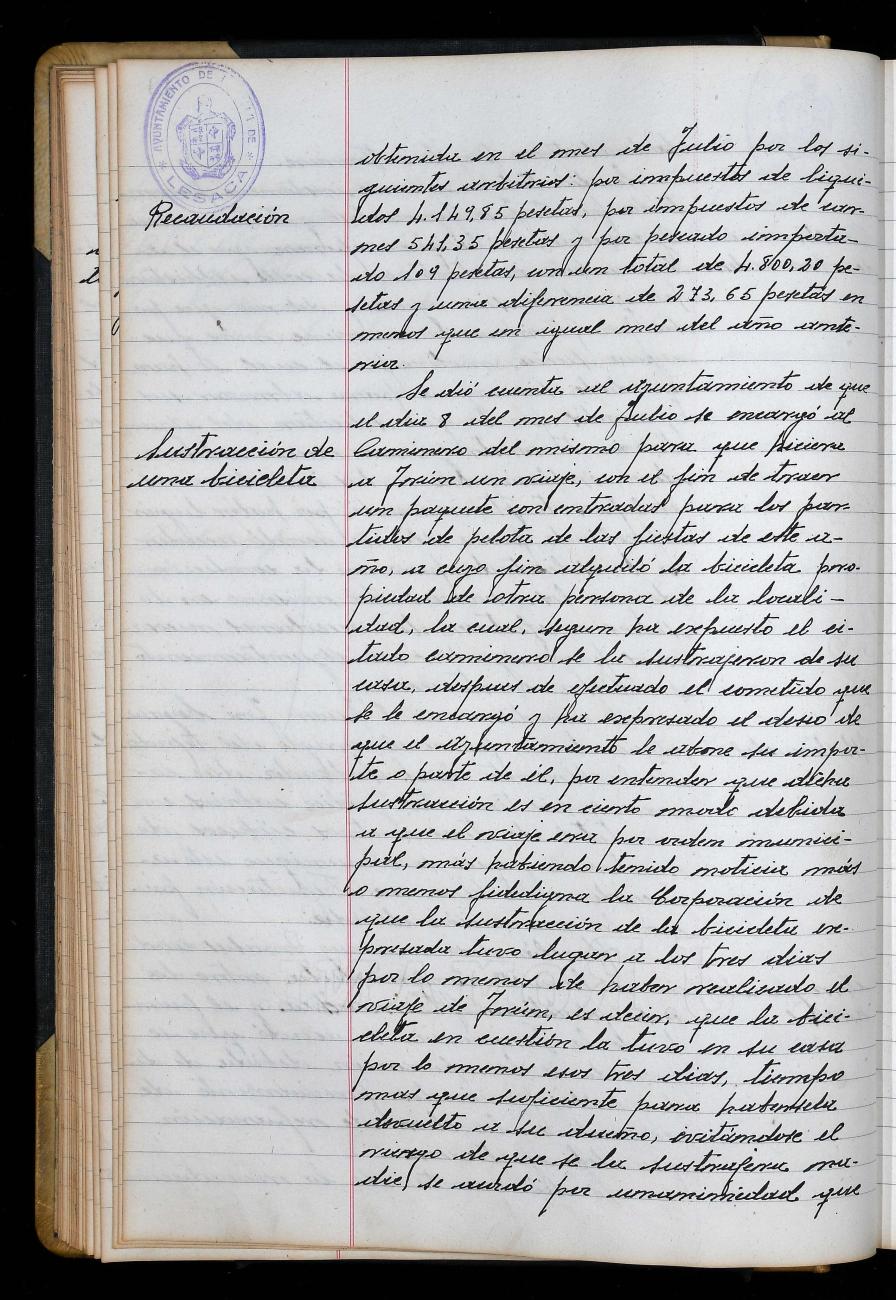 AYUNTAMIENTO DE
LESACA
obtenida en el mes de Julio por los si-
guientes arbitrios: por impuestos de liqui-
Recaudación
dos 4.149,85 pesetas, por impuestos de car-
nes 541,35 pesetas y por pescado importa-
do 109 pesetas, con un total de 4.800,20 pe-
setas y una diferencia de 273,65 pesetas en
menos que en igual mes del año ante-
rior.
Se dió cuenta al Ayuntamiento de que
el dia 8 del mes de Julio se encargó al
Sustracción de
una bicicleta
Caminero del mismo para que hiciera
a Irún un viaje, con el fin de traer
un paquete con entradas para los par-
tidos de pelota de las fiestas de este a-
ño, a cuyo fin alquiló la bicicleta pro-
piedad de otra persona de la locali-
dad, la cual, segun ha expuesto el ci-
tado caminero se la sustrajeron de su
casa, despues de efectuado el cometido que
se le encargó y ha expresado el deseo de
que el Ayuntamiento le abone su impor-
te o parte de él, por entender que dicha
sustracción es en cierto modo debida
a que el viaje era por orden munici-
pal, más habiendo tenido noticia más
o menos fidedigna la Corporación de
que la sustracción de la bicicleta ex-
presada tuvo lugar a los tres dias
por lo menos de haber realizado el
viaje de Irún, es decir, que la bici-
cleta en cuestión la tuvo en su casa
por lo menos esos tres dias, tiempo
mas que suficiente para habersela
devuelto a su dueño, evitándose el
riesgo de que se la sustrajera na-
die, se acordó por unanimidad que